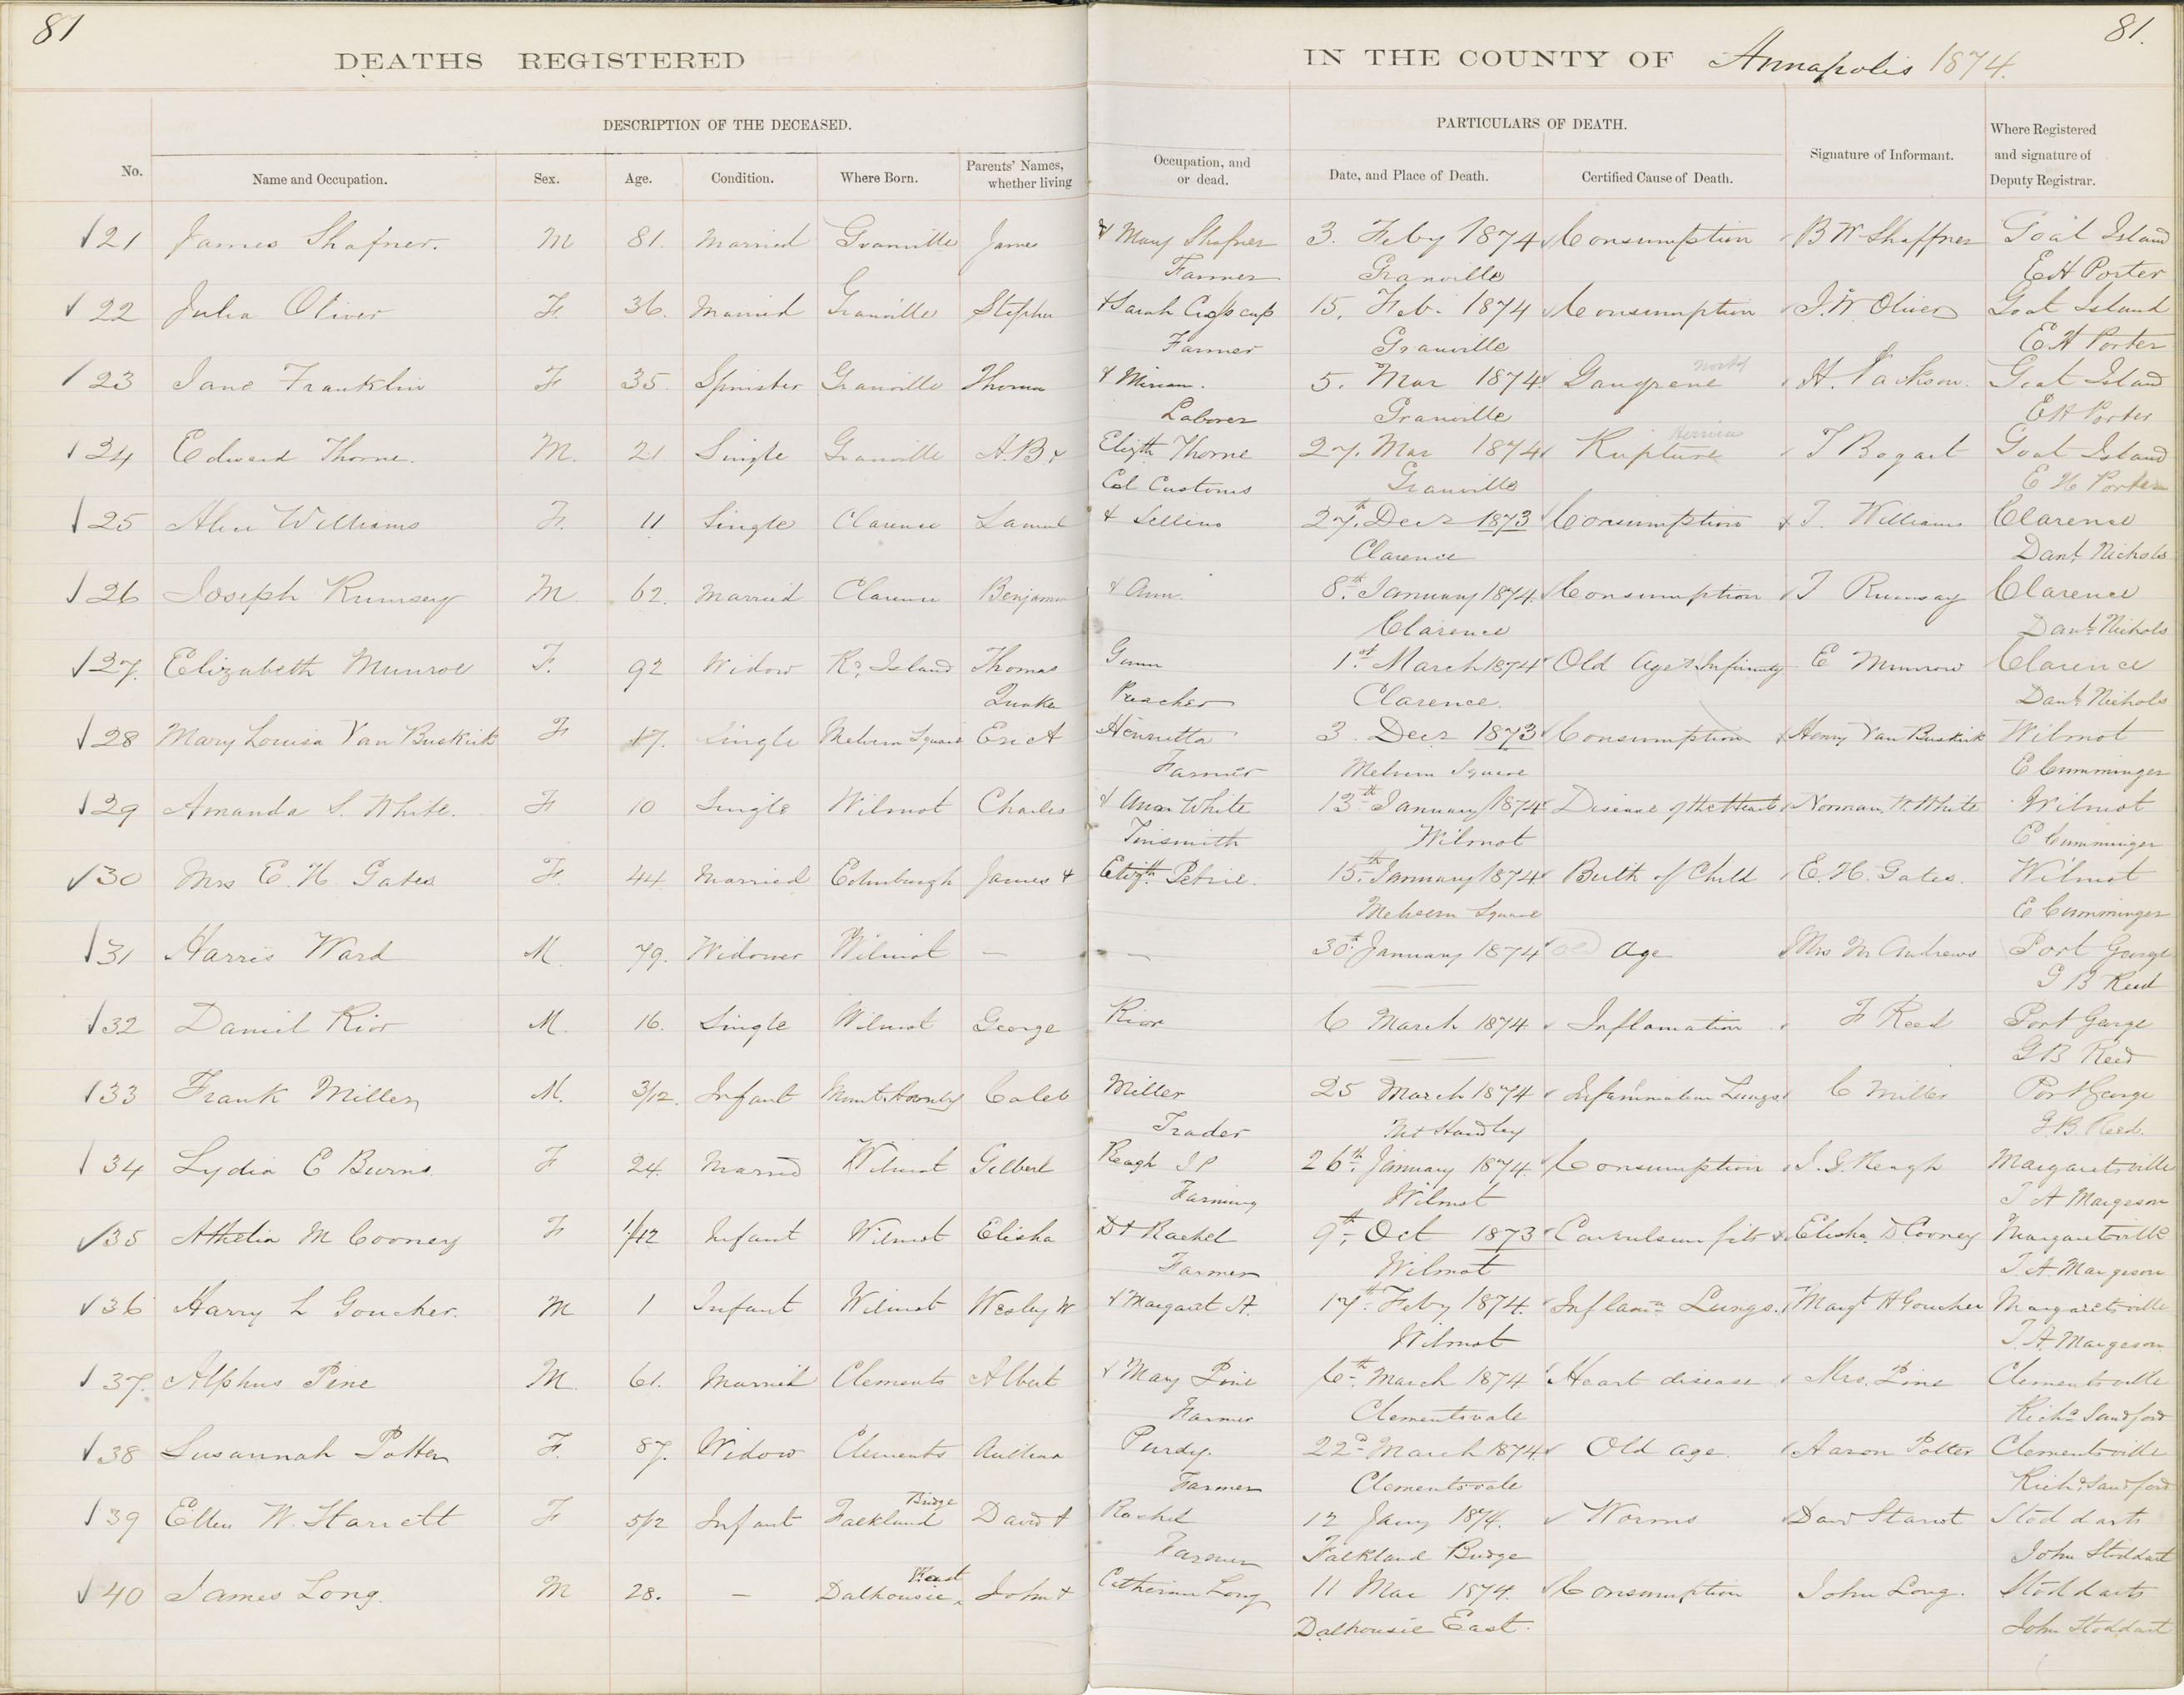 81
DEATHS REGISTERED
IN THE COUNTY OF Annapolis 1874.
81.
DESCRIPTION OF THE DECEASED.
PARTICULARS OF DEATH.
No.
Name and Occupation.
Sex.
Age.
Condition.
Where Born.
Parents' Names, whether living
Occupation, and or dead.
Date, and Place of Death.
Certified Cause of Death.
Signature of Informant.
Where Registered and signature of Deputy Registrar.
21 James Shafner. M 81. Married Granville James & Mary Shafner 3. Feby 1874 Consumption B W Shaffner Goat Island
Farmer Granville E H Porter
22 Julia Oliver F. 36. Married Granville Stephen & Sarah 15. Feb. 1874 Consumption J. W Oliver Goat Island
Farmer Granville E H Porter
23 Jane Franklin F 35. Spinster Granville Thomas & Miriam. 5. Mar 1874 Gangrene H. Jackson. Goat Island
Laborer Granville E H Porter
24 Edward Thorne. M. 21 Single Granville A. B & Elizth Thorne 27. Mar 1874 Rupture Hernia T Bogart Goat Island
Col Customs Granville E H Porter
25 Williams F. 11 Single Clarence Samuel & 27th Decr 1873 Consumption T. Williams Clarence
Clarence Danl Nichols
26 Joseph Rumsey M. 62. Married Clarence Benjamin & Ann. 8th January 1874. Consumption T Rumsay Clarence
Clarence Danl Nichols
27. Elizabeth Munroe F. 92 Widow Rd Island Thomas Gunn 1st March 1874 Old Age & Infirmity E Munrow Clarence
Quaker Preacher Clarence. Danl Nichols
28 Mary Louisa Van Buskirk F 17. Single Melvern Square Eric A Henrietta 3. Decr 1873 Consumption Henry Van Buskirk Wilmot
Farmer Melvern Square E Cumminger
29 Amanda S. White. F 10 Single Wilmot Charles & Ann White 13th January 1874 Disease of the Heart Norman W. White Wilmot
Tinsmith Wilmot E Cumminger
30 Mrs E. H. Gates F. 44. Married Edinburgh James & Elizth Petrie. 15th January 1874 Birth of Child E. H. Gates. Wilmot
Melvern Square E Cumminger
31 Harris Ward M. 79. Widower Wilmot — — 30th January 1874 Old Age Mrs M Andrews Port George
— — G B Reed
32 Daniel Rior M. 16. Single Wilmot George Rior 6 March 1874 Inflamation F Reed Port George
— — G B Reed
33 Frank Miller M. 3/12. Infant Mount Caleb Miller 25 March 1874 Inflammation Lungs C Miller Port George
Trader Mt Handley G. B. Reed.
34 Lydia E Burns. F 24. Married Wilmot Gilbert Reagh J P 26th January 1874. Consumption J. G. Reagh Margaretsville
Farming Wilmot T A Margeson
35 Athelia M Cooney F 1/12 Infant Wilmot Elisha D & Rachel 9th Oct 1873 Convulsion fits Elisha D Cooney Margaretville
Farmer Wilmot T. A. Margeson
36 Harry L Goucher. M 1 Infant Wilmot Wesley W & Margaret A. 17th Feby 1874. Inflamn Lungs. Margt H Goucher Margaretsville
Wilmot T. A. Margeson
37. Alphus Pine M. 61. Married Clements Albert & Mary Pine 6th March 1874 Heart disease Mrs. Pine Clementsville
Farmer Clementsvale Richd Sandford
38 Susannah Potter F. 87. Widow Clements Purdy. 22d March 1874 Old age. Aaron Potter Clementsville
Farmer Clementsvale Richd Sandford
39 Ellen W. Starrett F 5/12 Infant Falkland Bridge David & Rachel 12 Jany 1874. Worms Stoddarts
Farmer Falkland Bridge John Stoddart
40 James Long. M 28. — Dalhousie East John & Catherine Long 11 Mar 1874. Consumption John Long. Stoddarts
Dalhousie East. John Stoddart